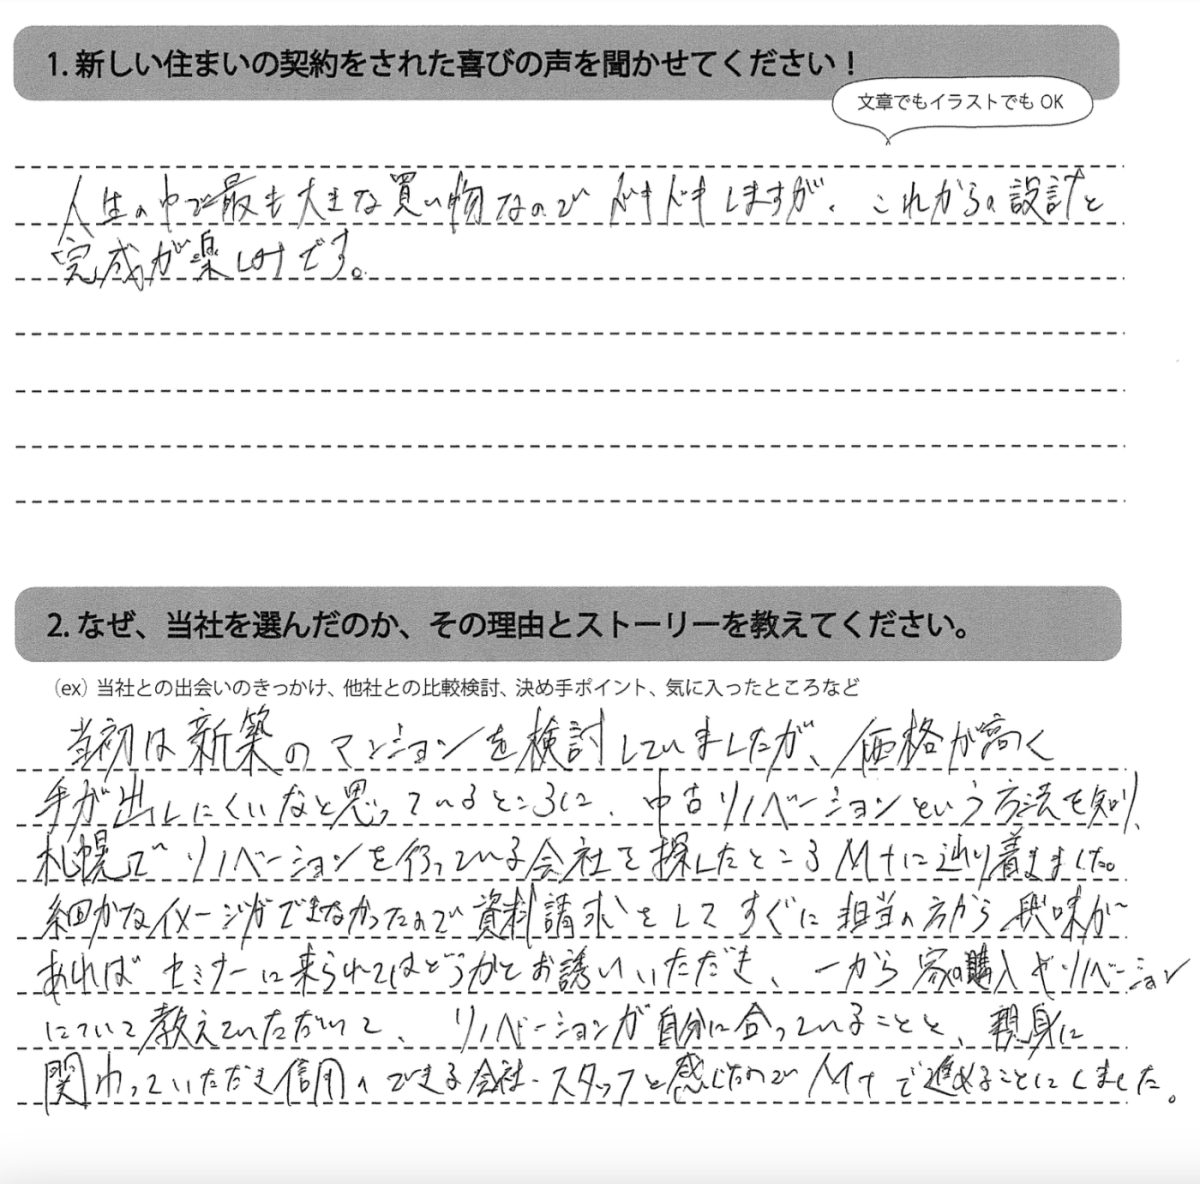 1. 新しい住まいの契約をされた喜びの声を聞かせてください！
文章でもイラストでも OK
人生の中で最も大きな買い物なのでドキドキしますが、これからの設計と
完成が楽しみです。
2. なぜ、当社を選んだのか、その理由とストーリーを教えてください。
（ex）当社との出会いのきっかけ、他社との比較検討、決め手ポイント、気に入ったところなど
当初は新築のマンションを検討していましたが、価格が高く
手が出しにくいなと思っているところに、中古リノベーションという方法を知り、
札幌でリノベーションを行っている会社を探したところM+に辿り着きました。
細かなイメージができなかったので資料請求をしてすぐに担当の方から興味が
あればセミナーに来られてはどうかとお誘いいただき、一から家の購入やリノベーション
について教えていただいて、リノベーションが自分に合っていることと、親身に
関わっていただき信用のできる会社・スタッフと感じたのでM+で進めることにしました。